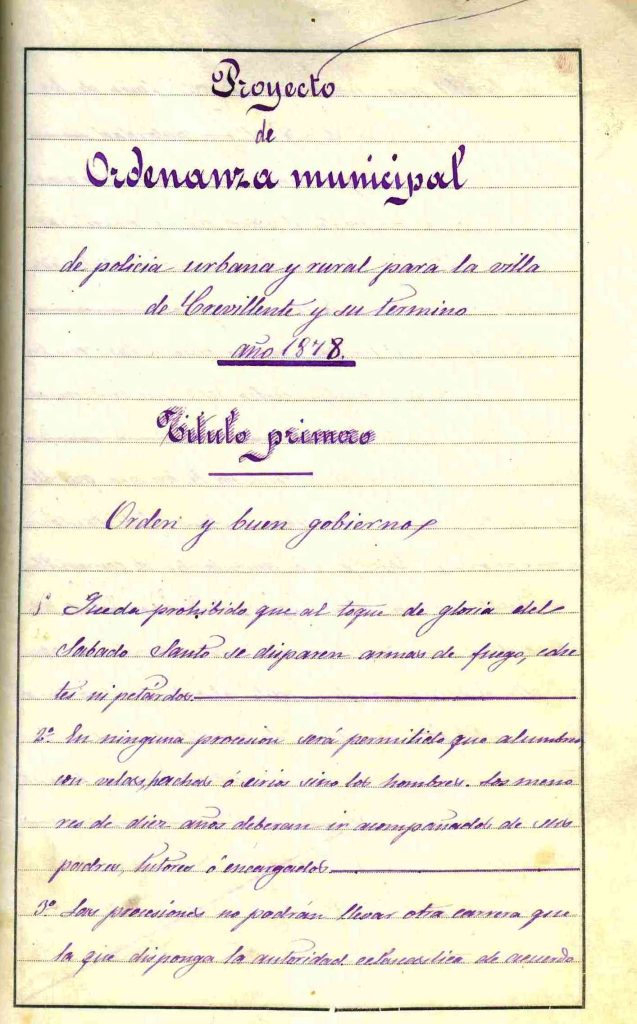 Proyecto
de
Ordenanza municipal
de policia urbana y rural para la villa
de Crevillente y su termino
año 1878.
Titulo primero
Orden y buen gobierno
1º Queda prohibido que al toque de gloria del
Sabado Santo se disparen armas de fuego, cohe
tes ni petardos.
2º En ninguna procesion será permitido que alumbren
con velas, hachas ó cirios sino los hombres. Los meno
res de diez años deberan ir acompañados de sus
padres, tutores ó encargados.
3º Las procesiones no podrán llevar otra carrera que
la que disponga la autoridad eclesiastica de acuerdo